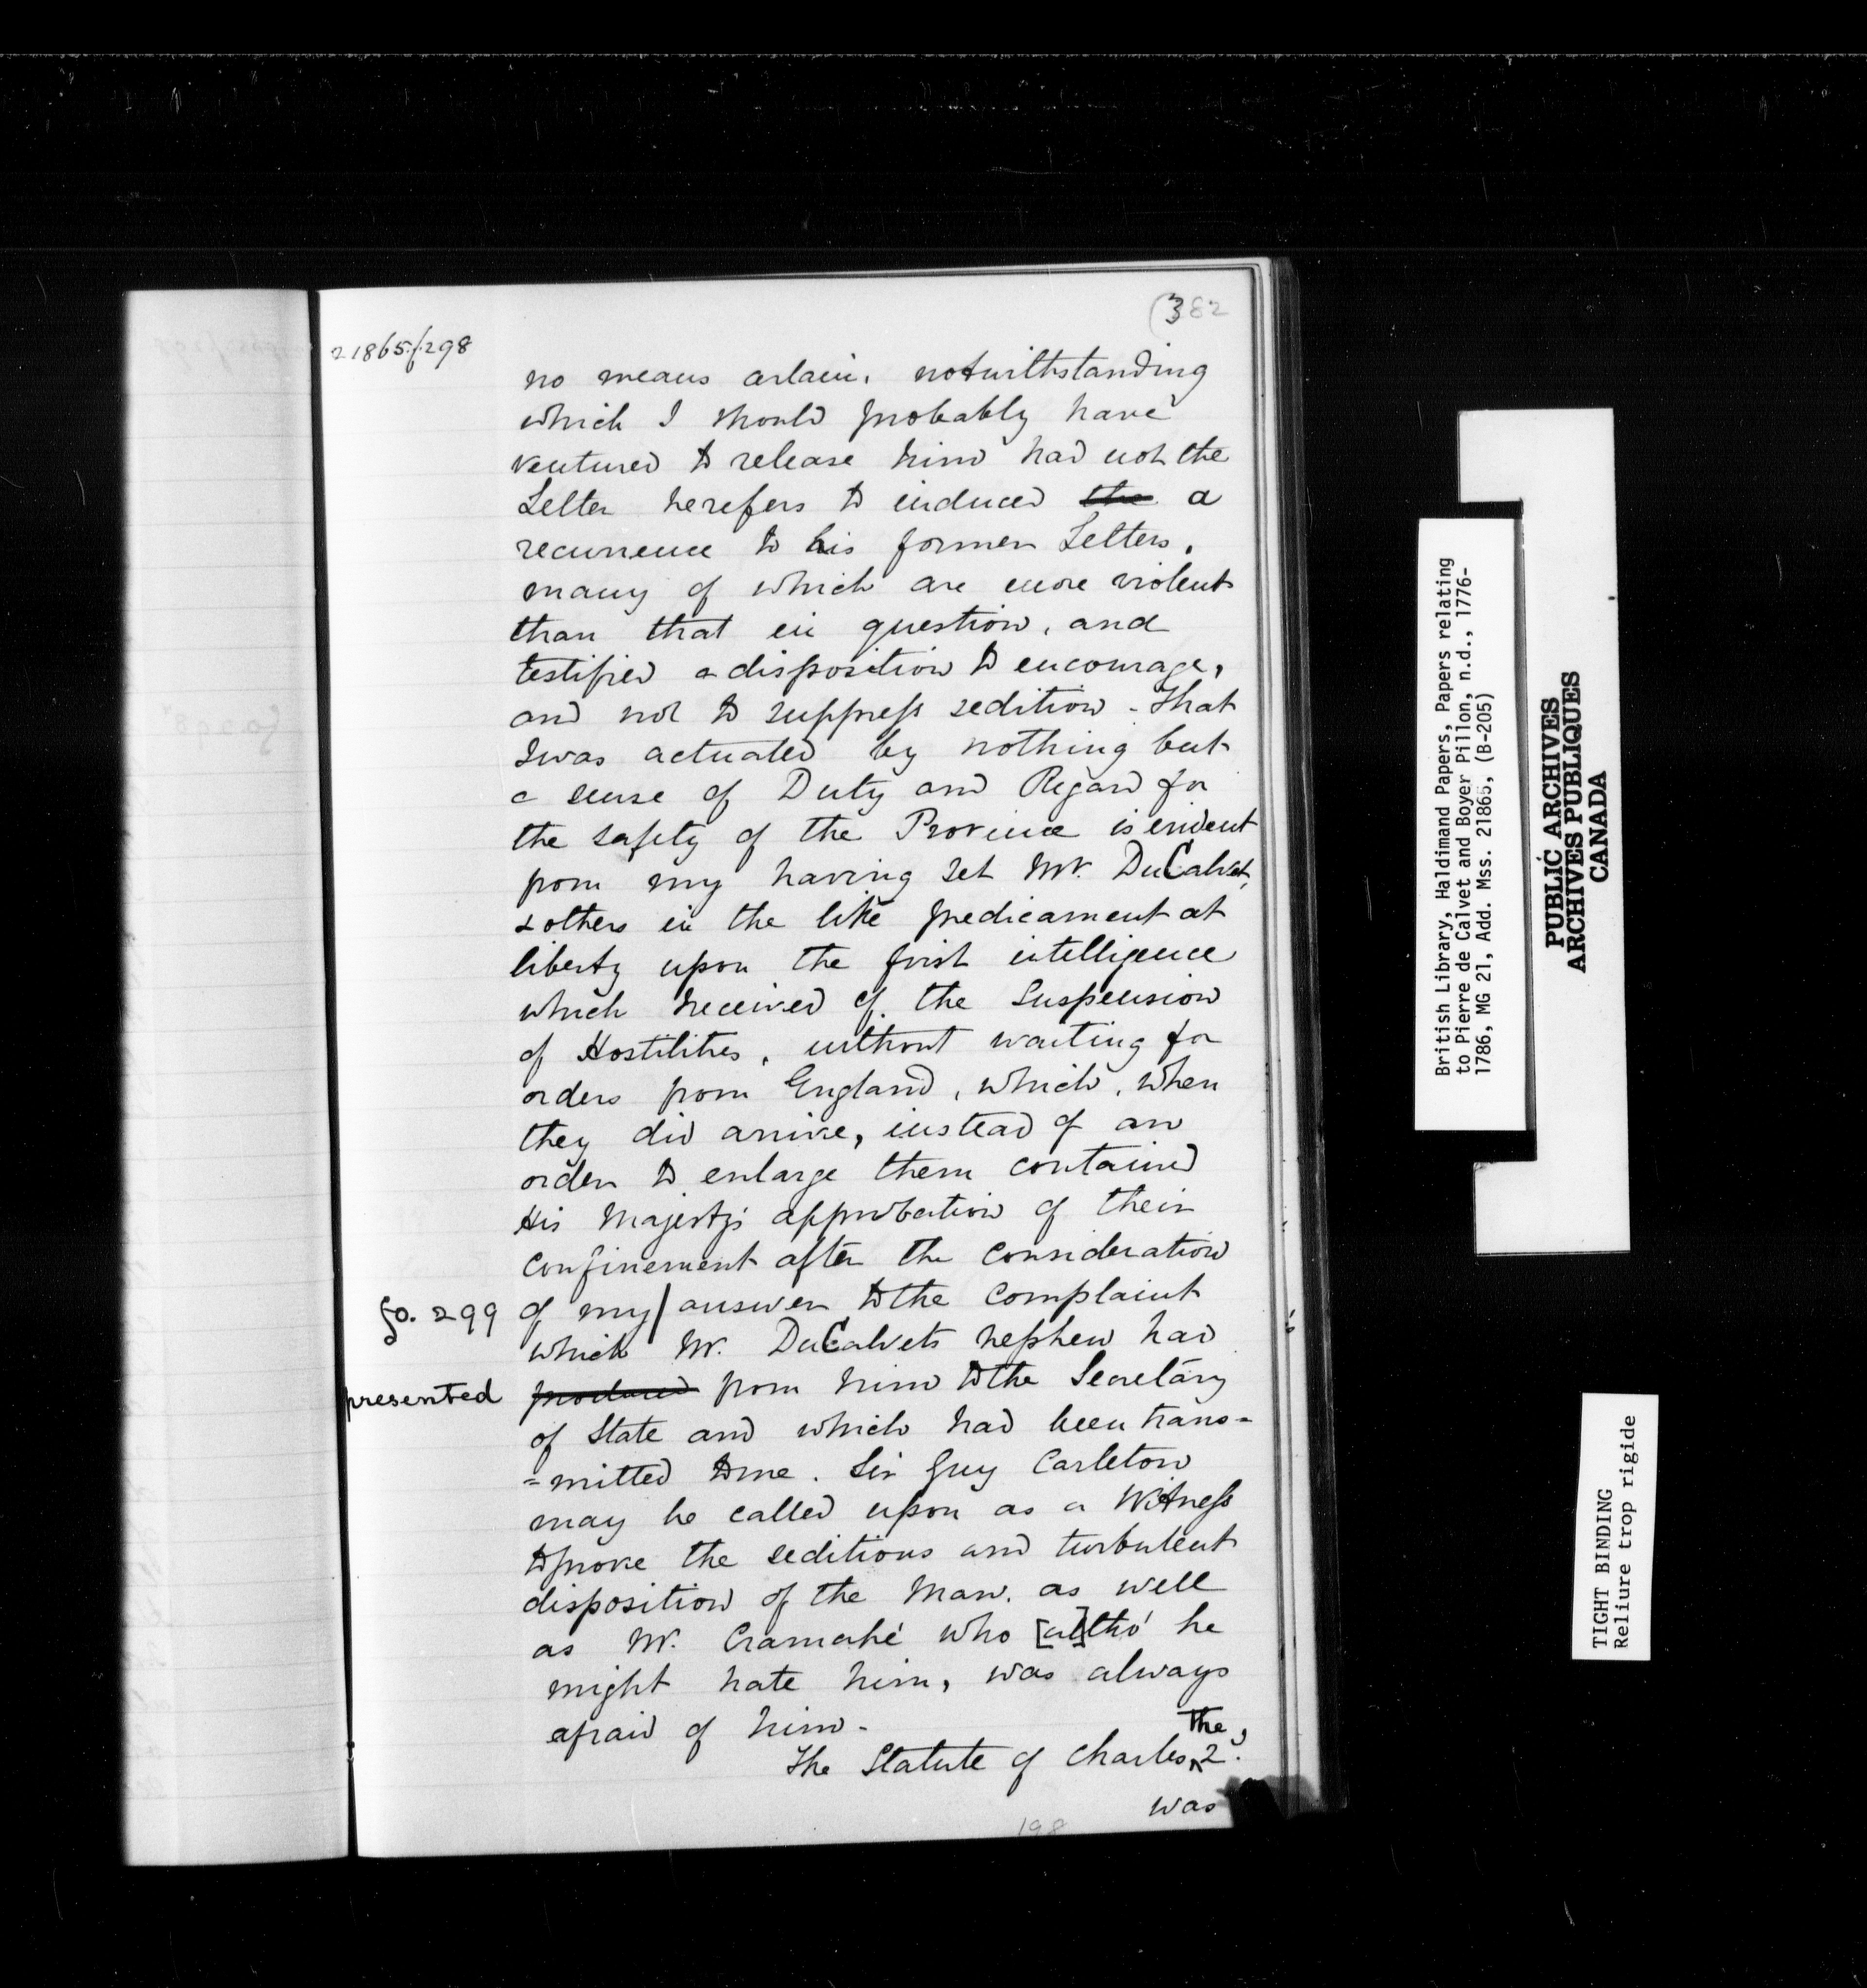 (382
21865/f.298
no means certain, notwithstanding
which I should probably have
ventured to release him had not the
Letter he refers to induced ~~the~~ a
recurrence to his former Letters,
many of which are more violent
than that in question, and
testified a disposition to encourage,
and not to suppress sedition - That
I was actuated by nothing but
a sense of Duty and Regard for
the safety of the Province is evident
from my having set Mr. DuCalvet,
& others in the like predicament at
liberty upon the first intelligence
which received of the Suspension
of Hostilities, without waiting for
orders from England, which, when
they did arrive, instead of an
order to enlarge them contained
His Majesty's approbation of their
confinement after the consideration
fo. 299 of my/ answer to the Complaint
which Mr. DuCalvets nephew had
presented ~~produced~~ from him to the Secretary
of State and which had been trans=
=mitted to me. Sir Guy Carleton
may be called upon as a Witness
to prove the seditious and turbulent
disposition of the Man, as well
as Mr. Cramahé who [al]tho' he
might hate him, was always
afraid of him -
The Statute of Charles the 2.
was
198
British Library, Haldimand Papers, Papers relating
to Pierre de Calvet and Boyer Pillon, n.d., 1776-
1786, MG 21, Add. Mss. 21865, (B-205)
PUBLIC ARCHIVES
ARCHIVES PUBLIQUES
CANADA
TIGHT BINDING
Reliure trop rigide